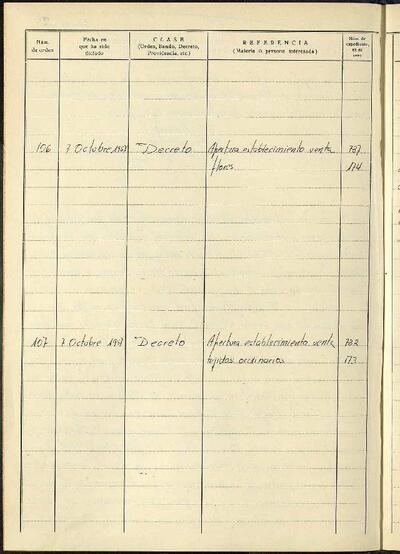 Núm. de orden
Fecha en que ha sido dictado
CLASE
(Orden, Bando, Decreto, Providencia, etc.)
REFERENCIA
(Materia o persona interesada)
Núm. de expediente, en su caso
106 7 Octubre Decreto Apertura establecimiento venta 787
flores 174
107 7 Octubre Decreto Apertura establecimiento venta 782
tejidos ordinarios 173